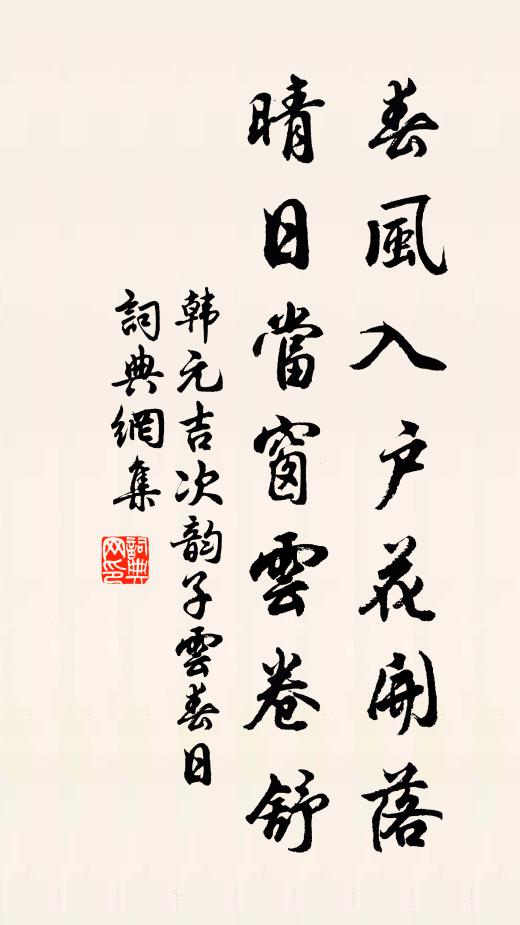 春風入户花開落
晴日當窗雲卷舒
韩元吉次韵子雲春日
詞典網集
詞典网印